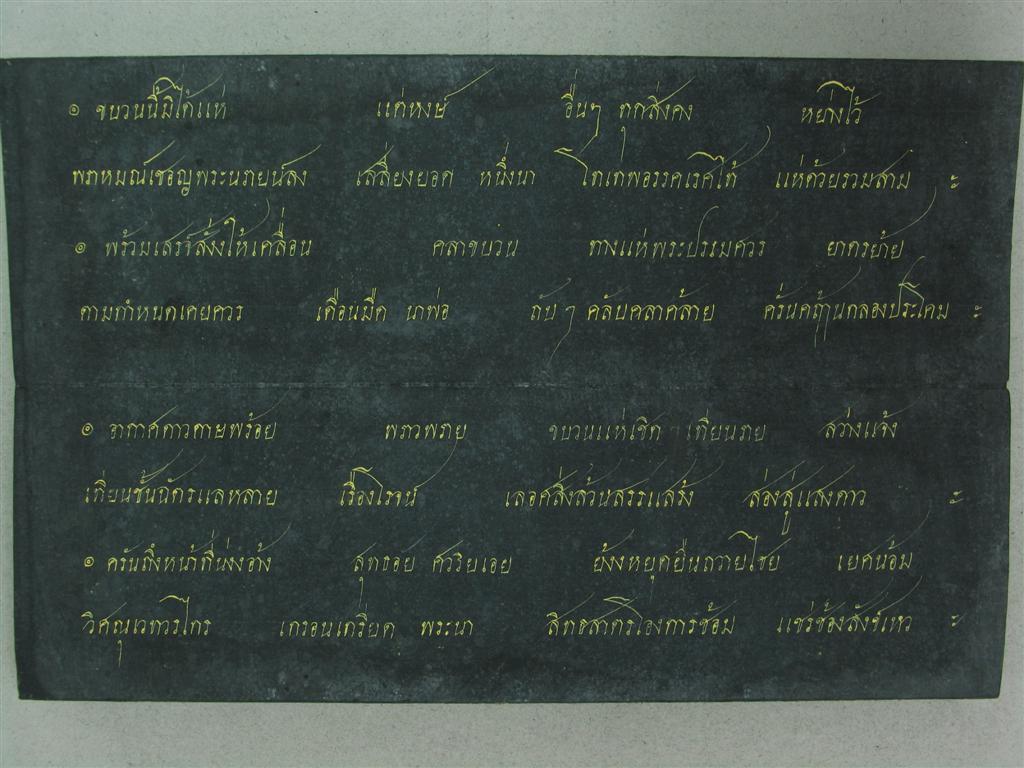 ๏ ขบวนนี้มิได้แห่ แต่หงษ์ อื่นๆ ทุกสิ่งคง หย่างไว้
พราหมณ์เชอญพระนรายน์ลง เสลี่ยงยอด หนึ่งนา โทเทพอรรคเรศได้ แห่ด้วยรวมสาม ะ
๏ พร้อมเสร์จสั่งให้เคลื่อน คลาขบวน ทางแห่พระปรเมศวร ยาตรย้าย
ตามกำหนดเคยควร เดือนมืด นาพ่อ ถับๆ คลับคลาคล้าย ครั่นคฤ้านกลองประโคม ะ
๏ อากาศดาวดายพร้อย พราวพราย ขบวนแห่เชิด เทียนราย สว่างแจ้ง
เทียนชั้นฉัตรแลหลาย เรืองโรจน์ เลอศสิ่งล้วนสรรแสร้ง ส่องสู้แสงดาว ะ
๏ ครั้นถึงหน้าที่นั่งอ้าง สุทธอย สวริยเอย ยั้งหยุดยืนถวายไชย เยศน้อม
วิศณุเวทวรไกร เกรอนเกรียด พระนา สิทธสาตรโองการซ้อม แซร่ซ้องสังข์เหว ะ